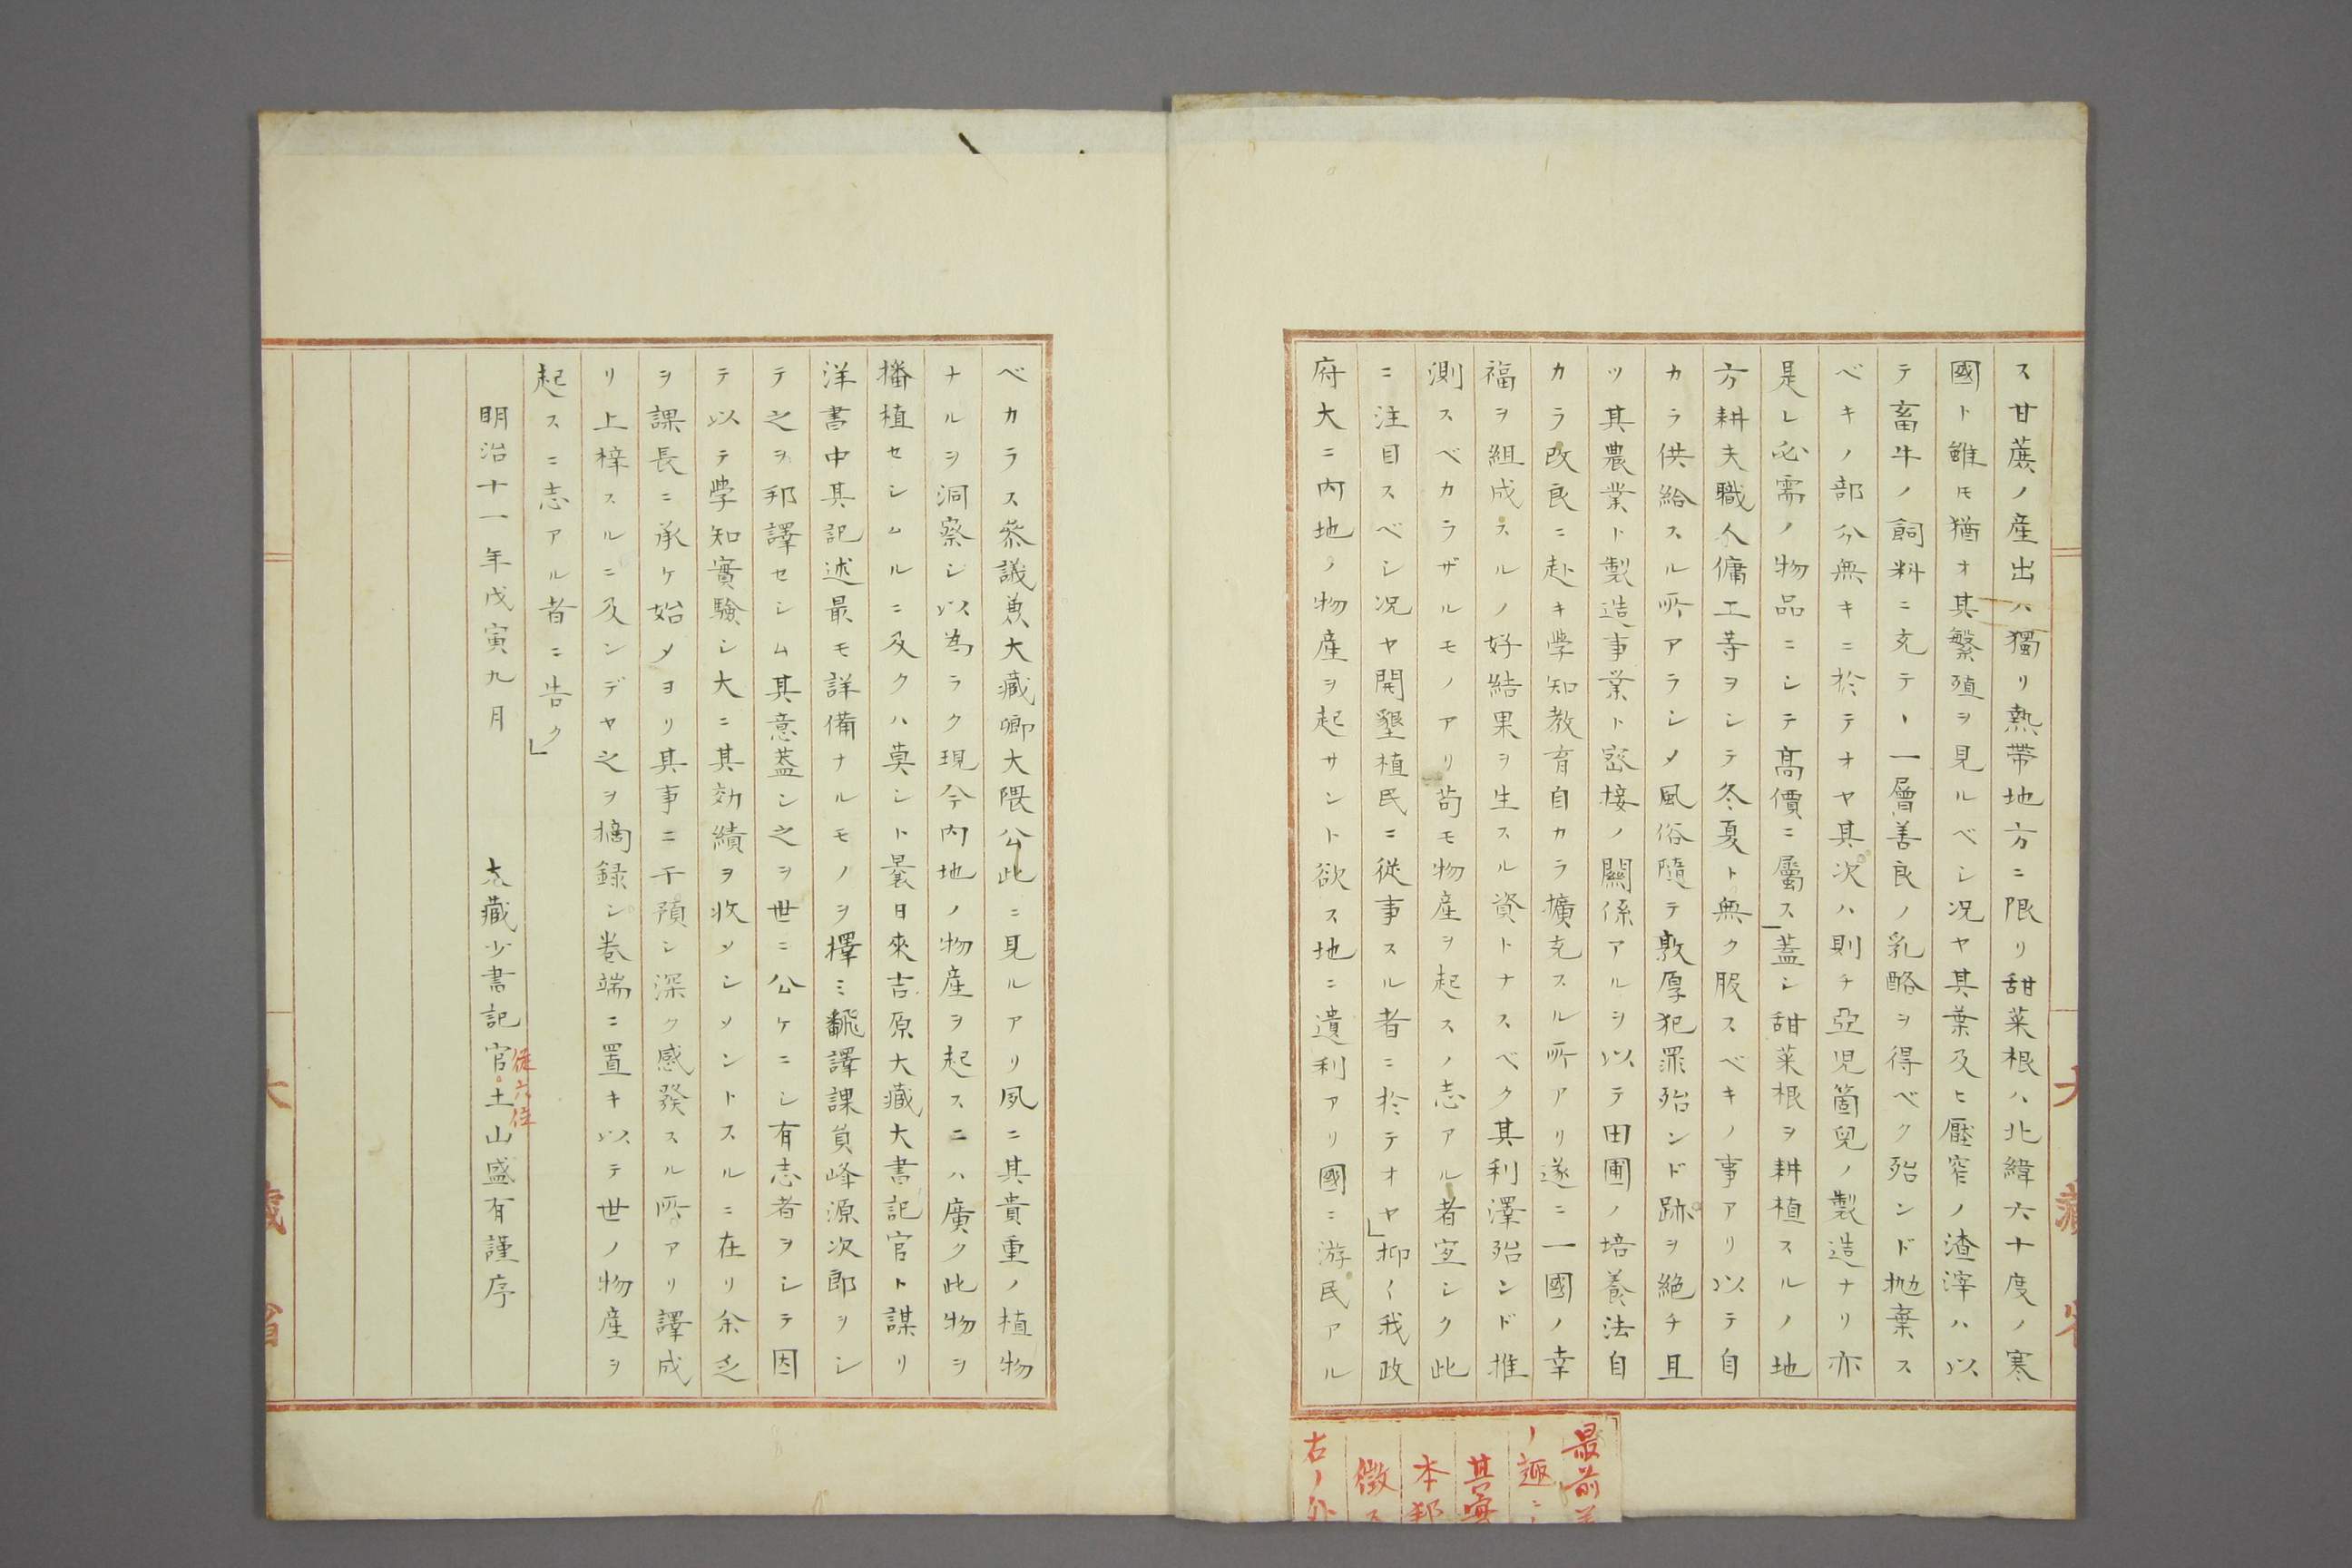 ス甘蔗ノ産出ハ獨リ熱帶地方ニ限リ甜菜根ハ北緯六十度ノ寒
國ト雖ㇳモ猶オ其繁殖ヲ見ルベシ況ヤ其葉及ヒ壓窄ノ渣滓ハ以
テ畜牛ノ飼料ニ充テヽ一層善良ノ乳酪ヲ得ベク殆ンド抛棄ス
ベキノ部分無キニ於テオヤ其次ハ則チ亞児箇兒ノ製造ナリ亦
是レ必需ノ物品ニシテ髙價ニ屬ス」蓋シ甜菜根ヲ耕植スルノ地
方耕夫職人傭工等ヲシテ冬夏ト無ク服スベキノ事アリ以テ自
カラ供給スル所アラシメ風俗隨テ敦厚犯罪殆ンド跡ヲ絶チ且
ツ其農業ト製造事業ト密接ノ關係アルヲ以テ田圃ノ培養法自
カラ改良ニ赴キ學知教育自カラ擴充スル所アリ遂ニ一國ノ幸
福ヲ組成スルノ好結果ヲ生スル資トナスベク其利澤殆ンド推
測スベカラザルモノアリ苟モ物産ヲ起スノ志アル者宜シク此
ニ注目スベシ況ヤ開墾植民ニ従事スル者ニ於テオヤ」抑〱我政
府大ニ内地ノ物産ヲ起サント欲ス地ニ遺利アリ國ニ游民アル
最前
ノ趣ニ
其
本邦
徴ス
右ノ外
大藏省
ベカラス叅議兼大藏卿大隈公此ニ見ルアリ夙ニ其貴重ノ植物
ナルヲ洞察シ以為ラク現今内地ノ物産ヲ起スニハ廣ク此物ヲ
播植セシムルニ及クハ莫シト曩日來吉原大藏大書記官ト謀リ
洋書中其記述最モ詳備ナルモノヲ擇ミ飜譯課員峰源次郎ヲシ
テ之ヲ邦譯セシム其意蓋シ之ヲ世ニ公ケニシ有志者ヲシテ因
テ以テ學知實驗シ大ニ其効績ヲ收メシメントスルニ在リ余乏
ヲ課長ニ承ケ始メヨリ其事ニ干預シ深ク感發スル所アリ譯成
リ上梓スルニ及ンデヤ之ヲ摘録シ巻端ニ置キ以テ世ノ物産ヲ
起スニ志アル者ニ告ク」
明治十一年戊寅九月
大藏少書記官土山盛有謹序
従六位
大藏省